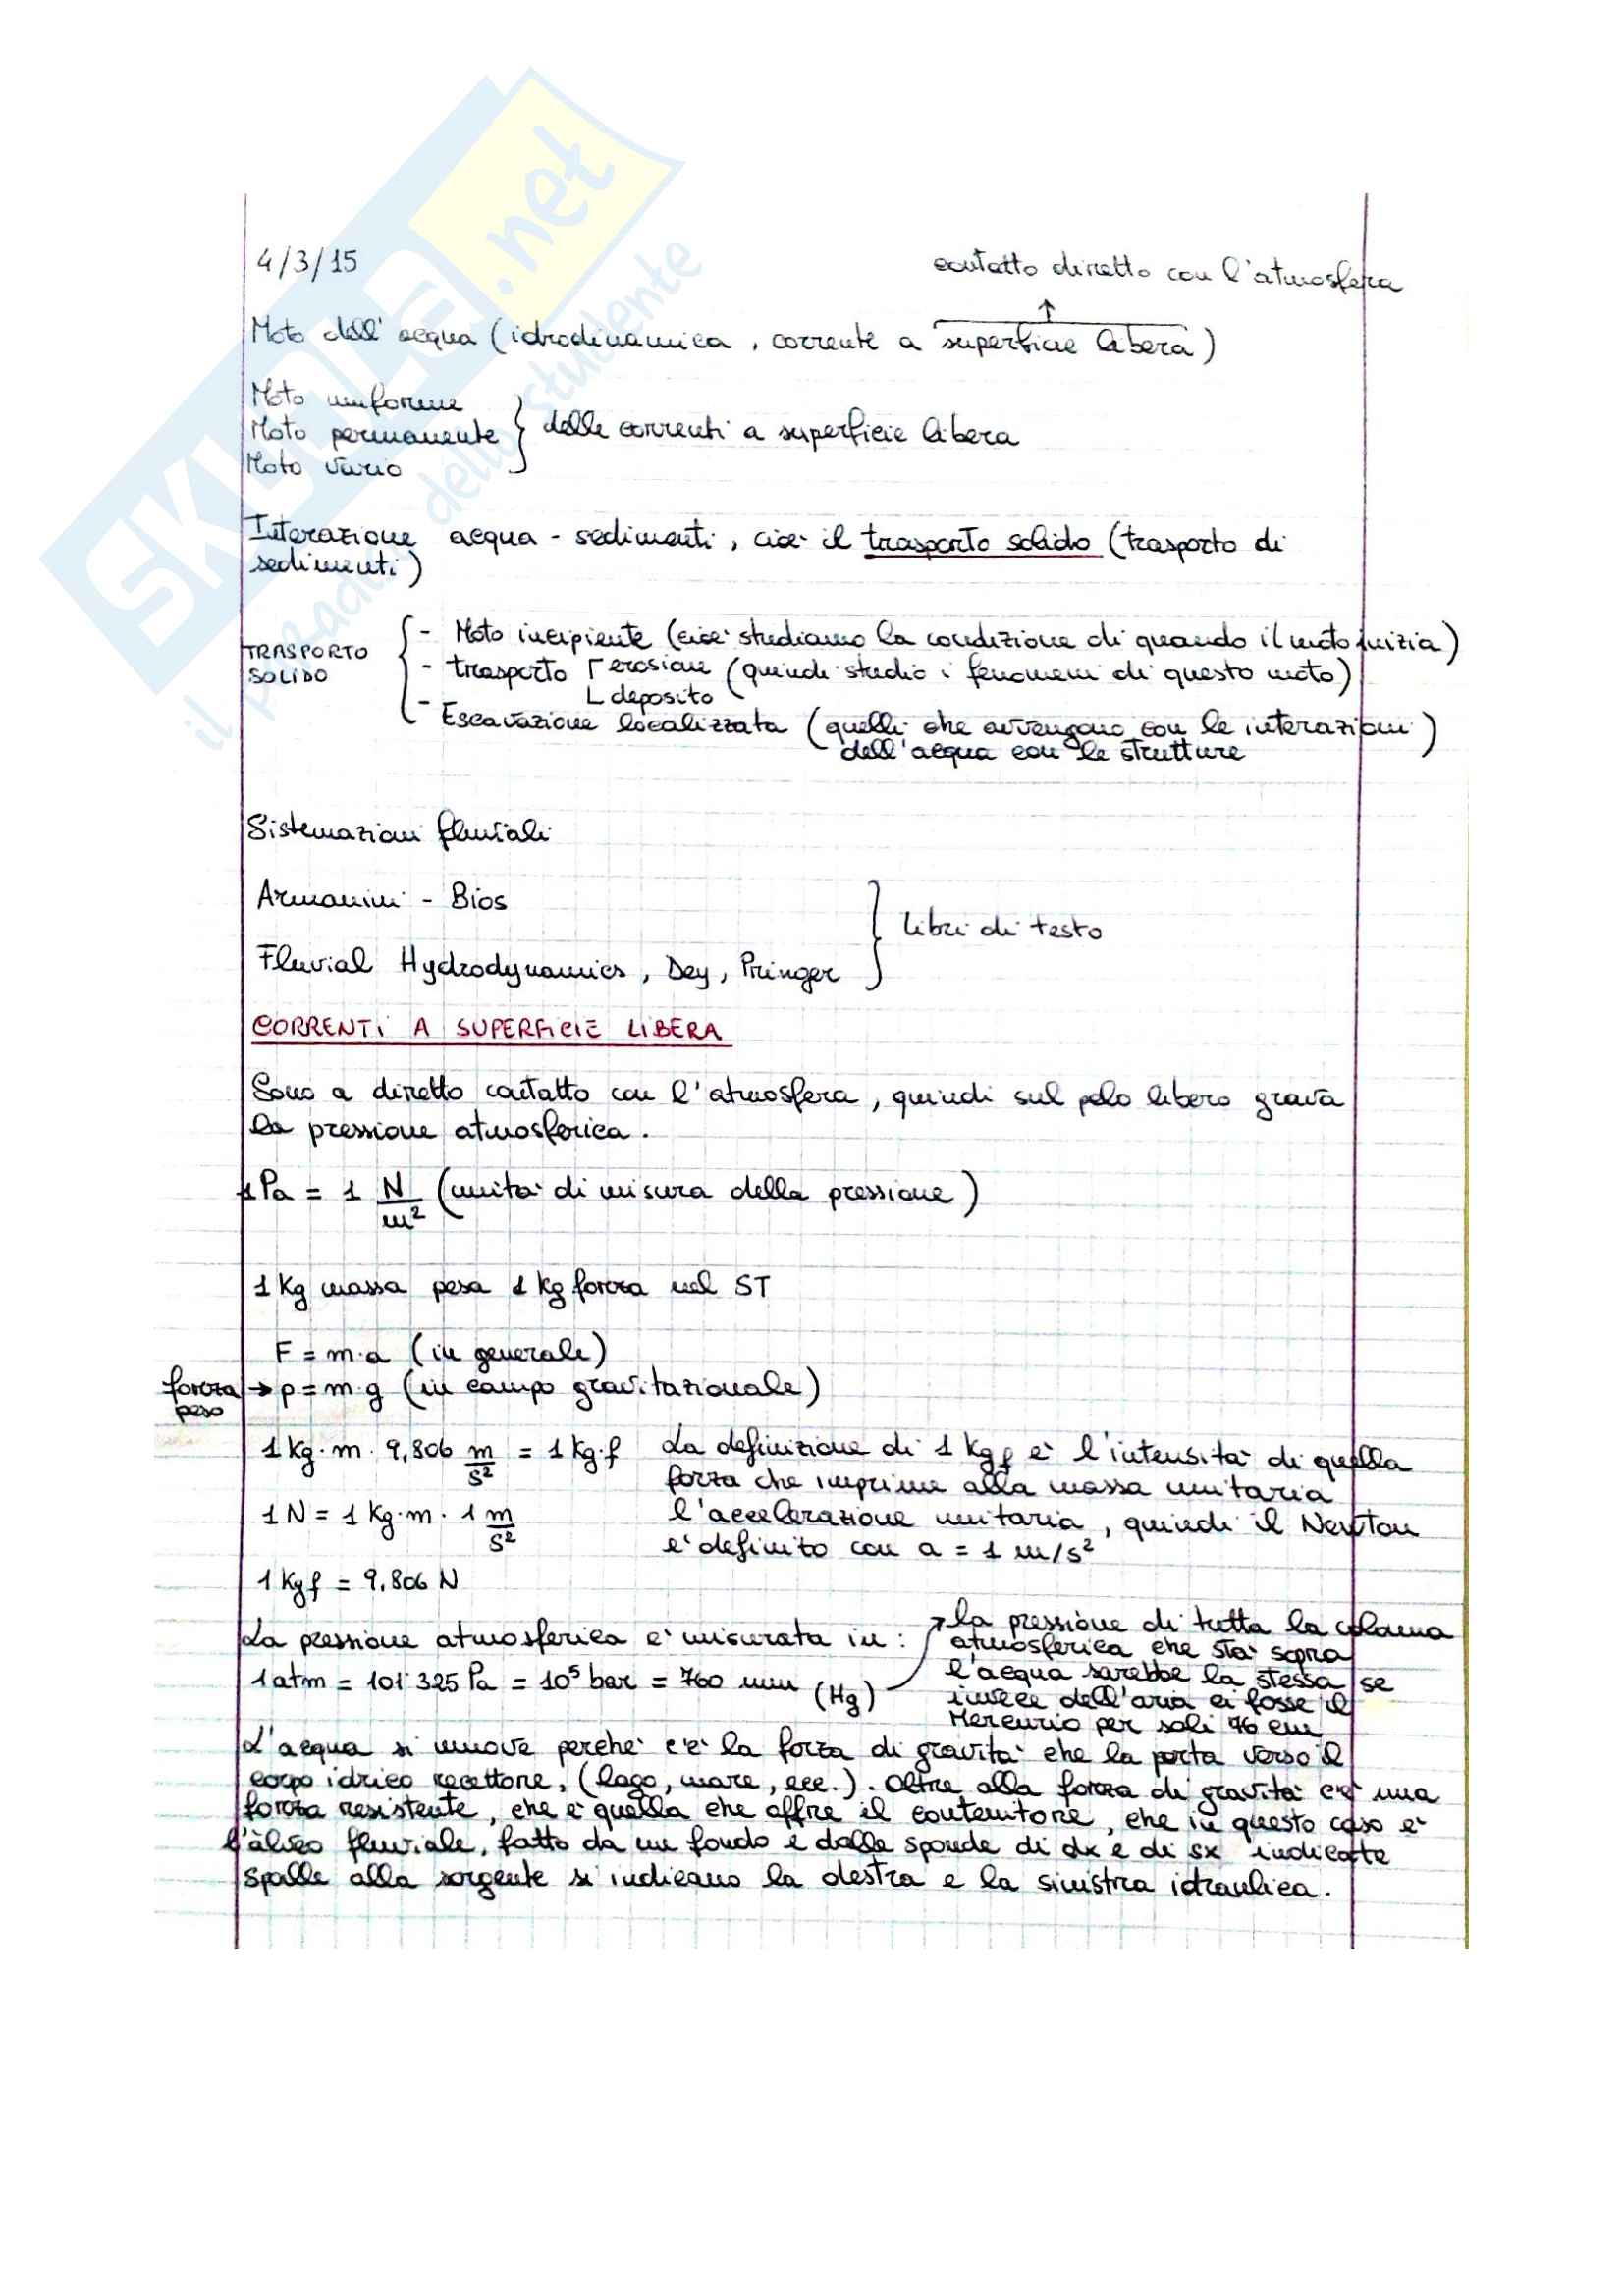 SKUOLA.net
il paradiso dello studente
4/3/15
contatto diretto con l'atmosfera
↑
Moto dell'acqua (idrodinamica, corrente a superficie libera)
Moto uniforme
Moto permanente } delle correnti a superficie libera
Moto vario
Interazione acqua - sedimenti, cioè il trasporto solido (trasporto di
sedimenti)
TRASPORTO SOLIDO
- Moto incipiente (cioè studiamo la condizione di quando il moto inizia)
- trasporto erosione (quindi studio i fenomeni di questo moto)
deposito
- Escavazione localizzata (quelli che avvengono con le interazioni
dell'acqua con le strutture)
Sistemazioni fluviali
Armanini - Bios
} libri di testo
Fluvial Hydrodynamics, Dey, Pringer
CORRENTI A SUPERFICIE LIBERA
Sono a diretto contatto con l'atmosfera, quindi sul pelo libero grava
la pressione atmosferica.
1 Pa = 1 N/m² (unità di misura della pressione)
1 Kg massa pesa 1 kg forza nel ST
F = m·a (in generale)
forza peso → p = m·g (in campo gravitazionale)
1 Kg·m · 9,806 m/s² = 1 Kg·f
La definizione di 1 Kgf è l'intensità di quella
forza che imprime alla massa unitaria
1 N = 1 Kg·m · 1 m/s²
l'accelerazione unitaria, quindi il Newton
è definito con a = 1 m/s²
1 Kgf = 9,806 N
La pressione atmosferica è misurata in:
1 atm = 101'325 Pa = 10⁵ bar = 760 mm (Hg)
la pressione di tutta la colonna
atmosferica che sta sopra
l'acqua sarebbe la stessa se
invece dell'aria ci fosse il
Mercurio per soli 76 cm
L'acqua si muove perché c'è la forza di gravità che la porta verso il
corpo idrico recettore, (lago, mare, ecc.). Oltre alla forza di gravità c'è una
forza resistente, che è quella che offre il contenitore, che in questo caso è
l'àlveo fluviale, fatto da un fondo e dalle sponde di dx e di sx indicate
spalle alla sorgente si indicano la destra e la sinistra idraulica.